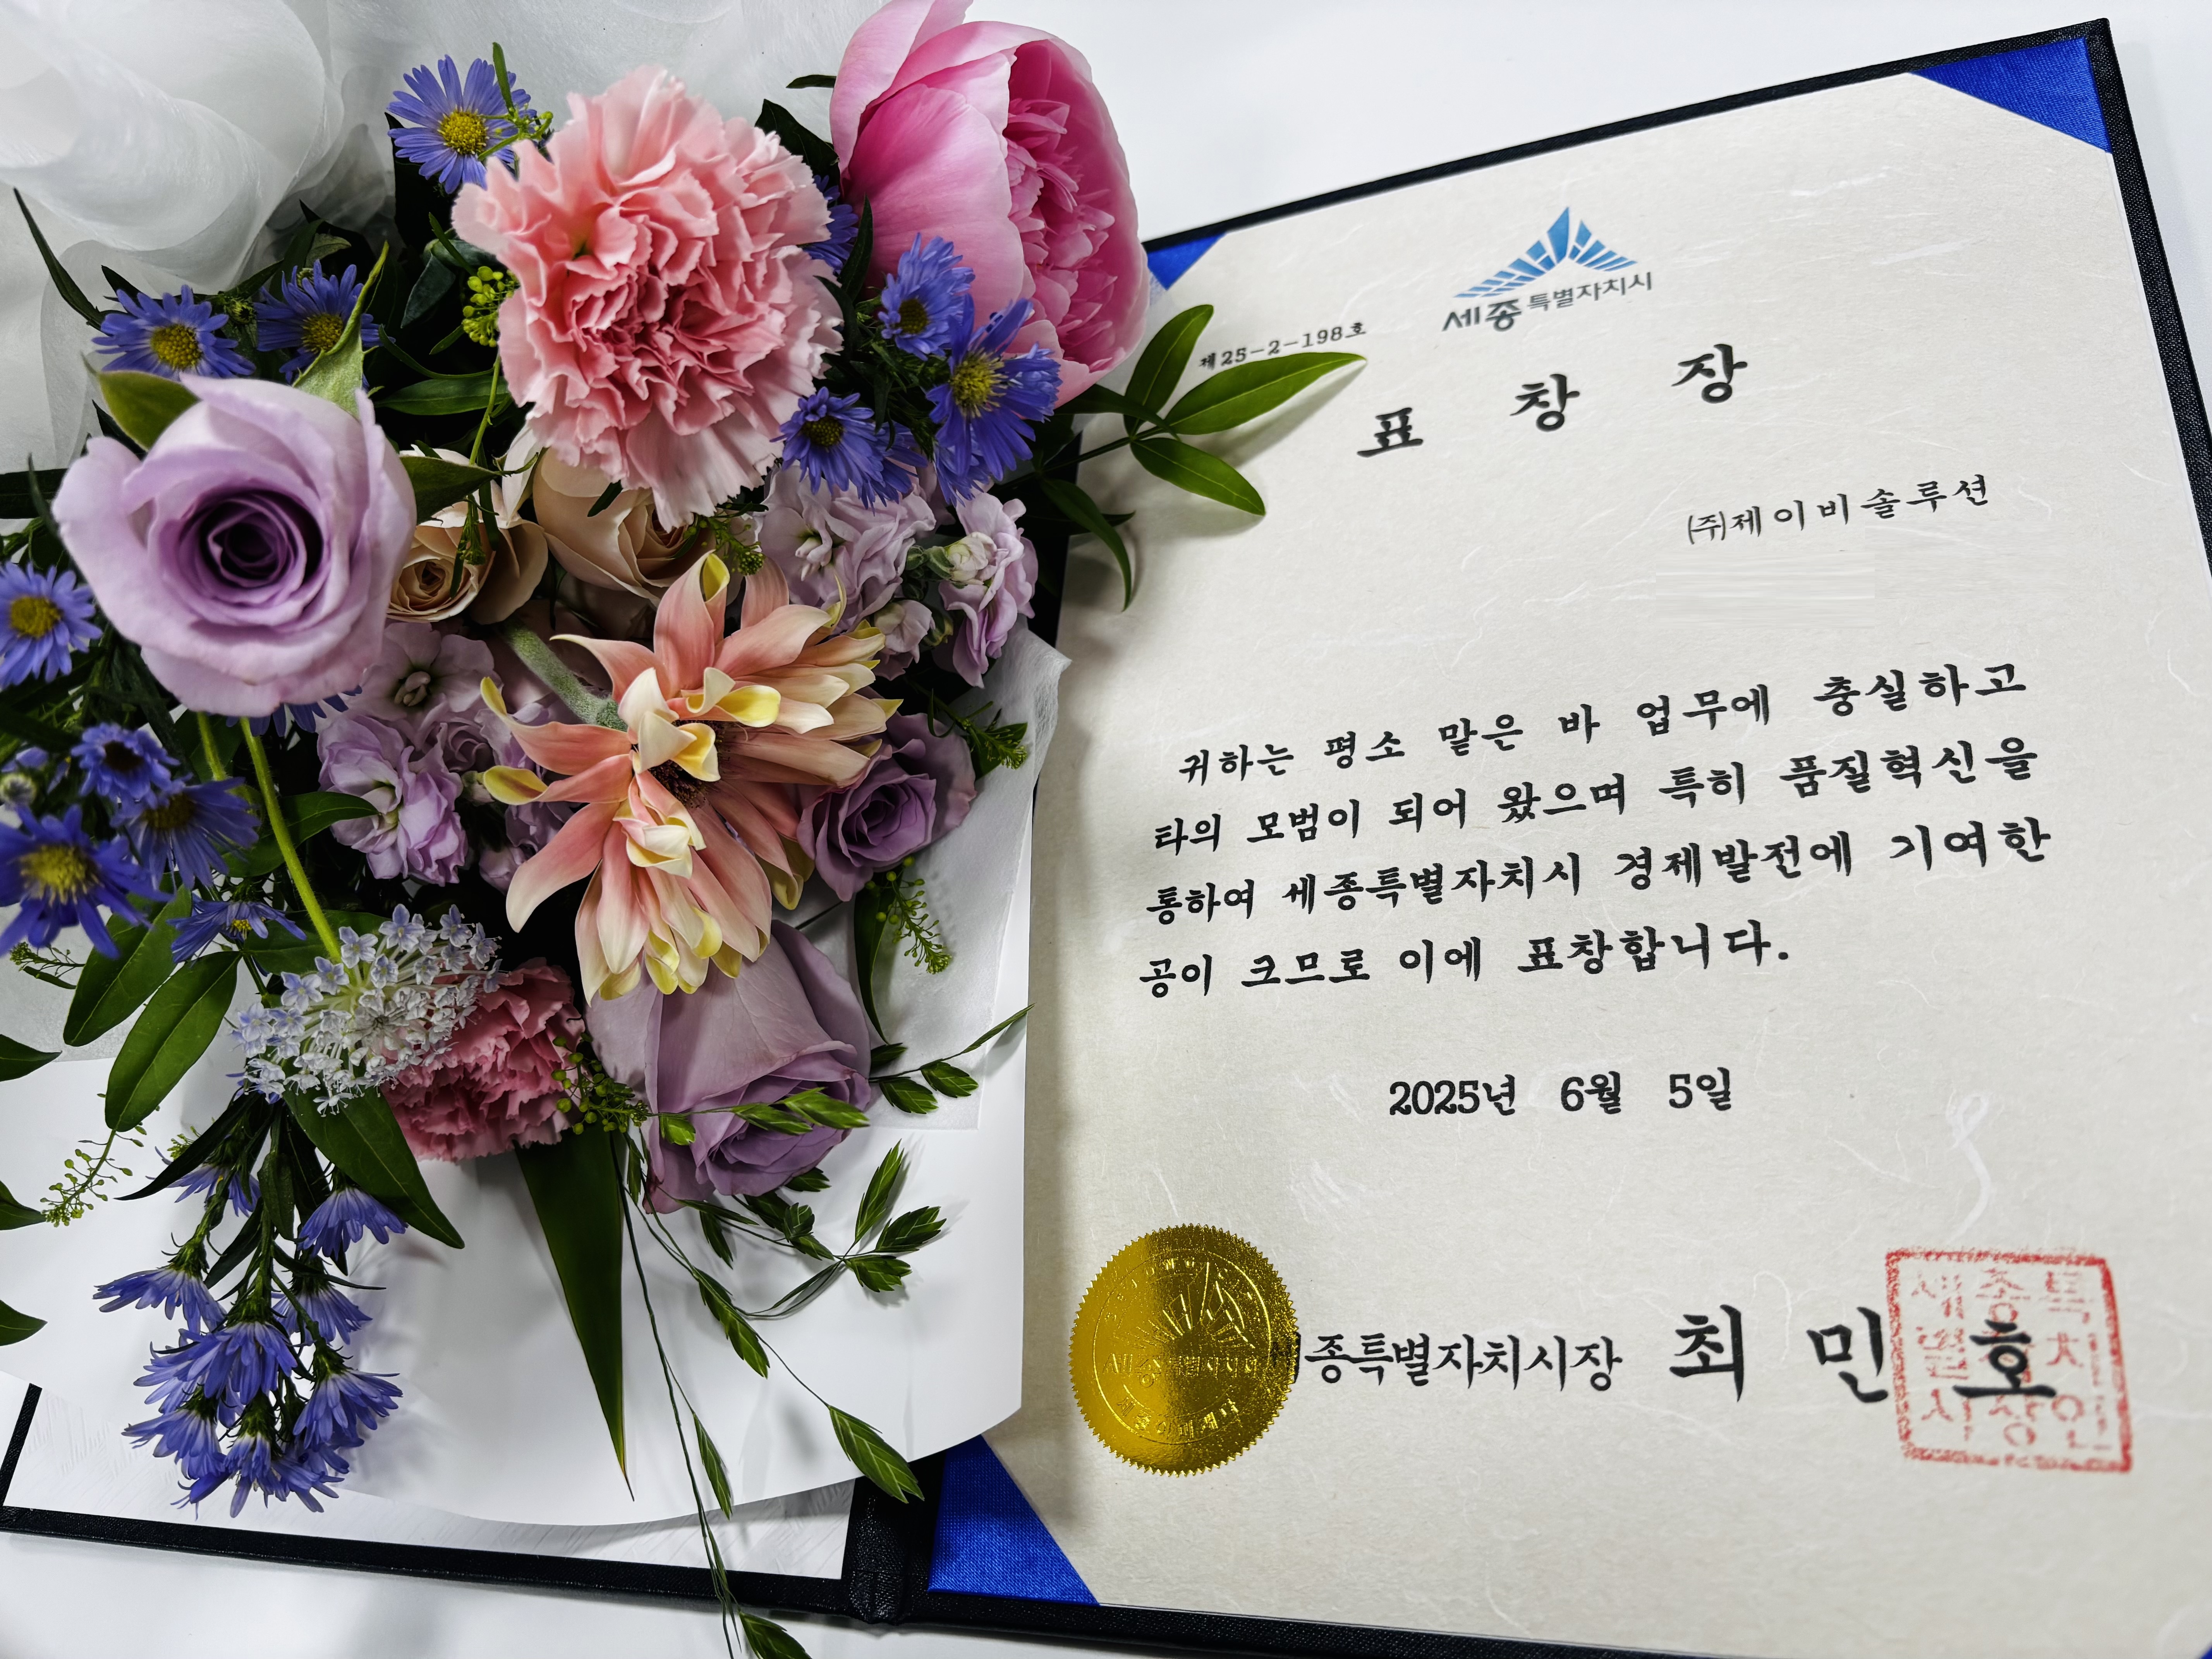 세종특별자치시
제25-2-198호
표 창 장
㈜제이비솔루션
귀하는 평소 맡은 바 업무에 충실하고
타의 모범이 되어 왔으며 특히 품질혁신을
통하여 세종특별자치시 경제발전에 기여한
공이 크므로 이에 표창합니다.
2025년 6월 5일
세종특별자치시장 최 민 호
세종특
별자치
시장인
세종특별자치시